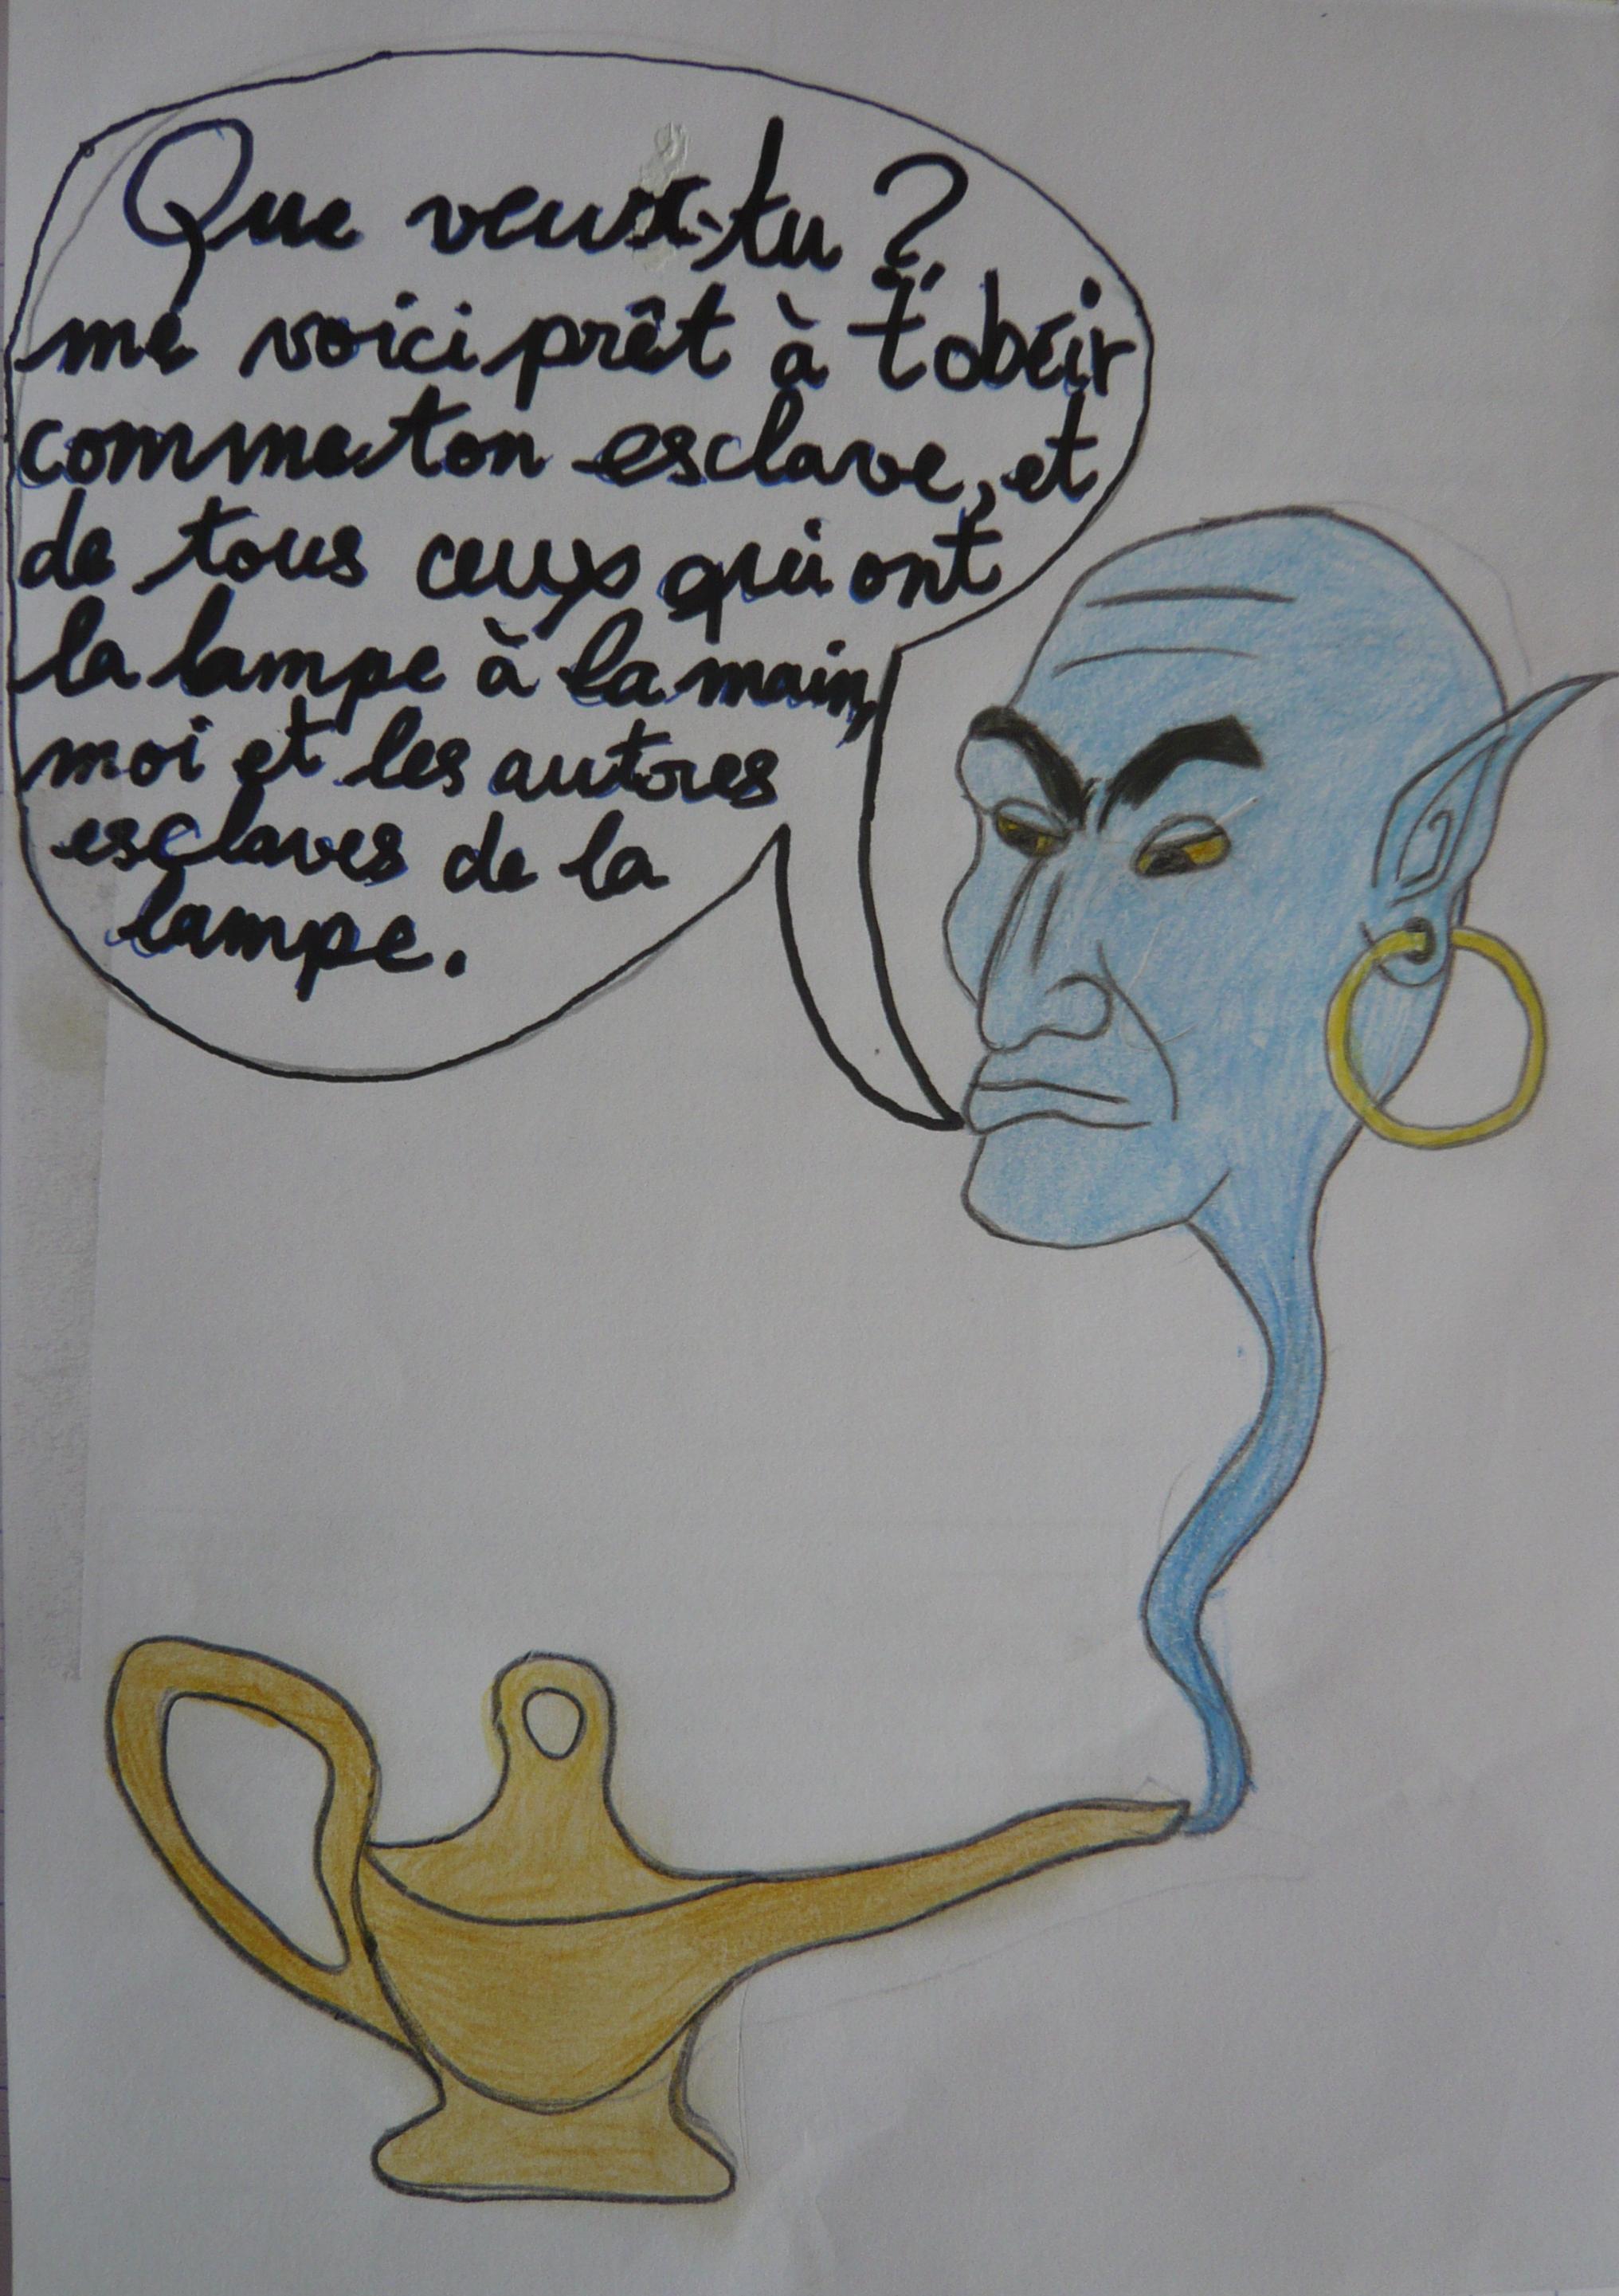 Que veux-tu ?
me voici prêt à t'obéir
comme ton esclave, et
de tous ceux qui ont
la lampe à la main,
moi et les autres
esclaves de la
lampe.